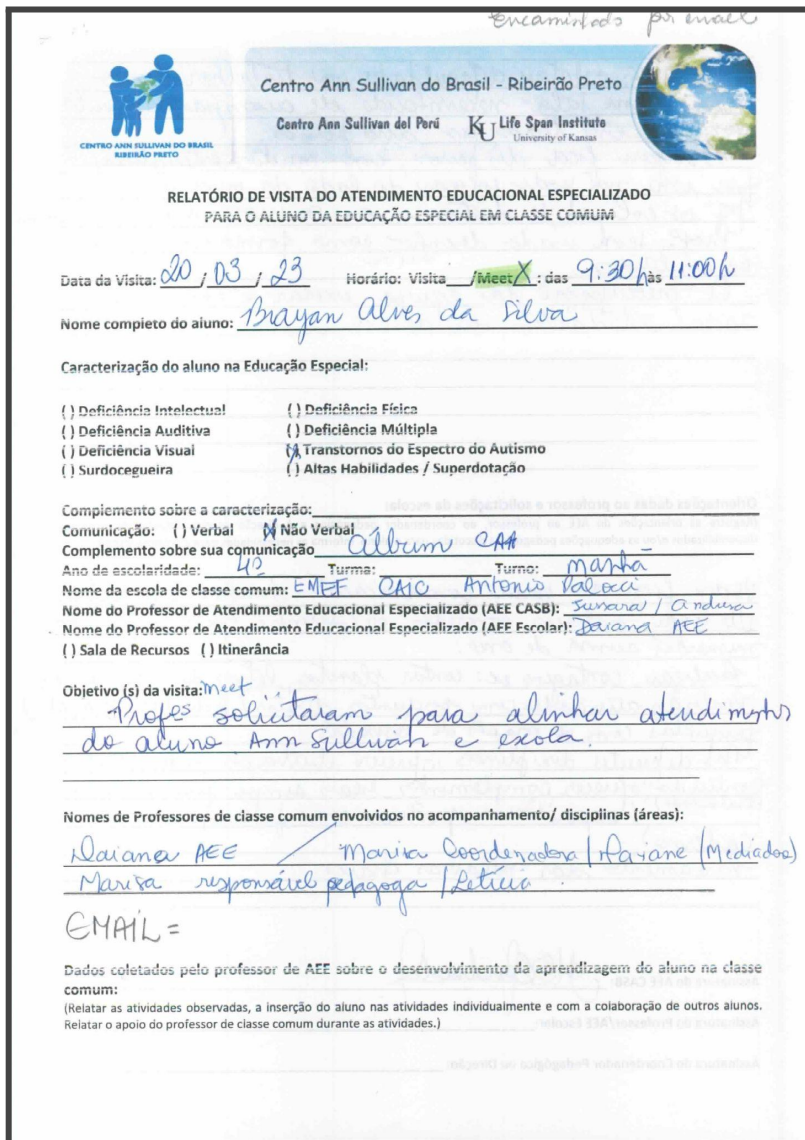 Encaminhado por email
CENTRO ANN SULLIVAN DO BRASIL
RIBEIRÃO PRETO
Centro Ann Sullivan do Brasil - Ribeirão Preto
Centro Ann Sullivan del Perú KU Life Span Institute
University of Kansas
RELATÓRIO DE VISITA DO ATENDIMENTO EDUCACIONAL ESPECIALIZADO
PARA O ALUNO DA EDUCAÇÃO ESPECIAL EM CLASSE COMUM
Data da Visita: 20 / 03 / 23 Horário: Visita ___/Meet X : das 9:30h às 11:00h
Nome completo do aluno: Brayan Alves da Silva
Caracterização do aluno na Educação Especial:
( ) Deficiência Intelectual ( ) Deficiência Física
( ) Deficiência Auditiva ( ) Deficiência Múltipla
( ) Deficiência Visual (X) Transtornos do Espectro do Autismo
( ) Surdocegueira ( ) Altas Habilidades / Superdotação
Complemento sobre a caracterização:
Comunicação: ( ) Verbal (X) Não Verbal
Complemento sobre sua comunicação Álbum CAA
Ano de escolaridade: 4º Turma: Turno: manhã
Nome da escola de classe comum: EMEF CAIC Antonio Palocci
Nome do Professor de Atendimento Educacional Especializado (AEE CASB): Jussara / Andresa
Nome do Professor de Atendimento Educacional Especializado (AEE Escolar): Daiana AEE
( ) Sala de Recursos ( ) Itinerância
Objetivo (s) da visita: meet
Profes solicitaram para alinhar atendimentos
do aluno Ann Sullivan e escola.
Nomes de Professores de classe comum envolvidos no acompanhamento/ disciplinas (áreas):
Daiana AEE / Marisa Coordenadora / Dayane (Mediadora)
Marisa responsável pedagoga / Letícia
EMAIL =
Dados coletados pelo professor de AEE sobre o desenvolvimento da aprendizagem do aluno na classe
comum:
(Relatar as atividades observadas, a inserção do aluno nas atividades individualmente e com a colaboração de outros alunos.
Relatar o apoio do professor de classe comum durante as atividades.)